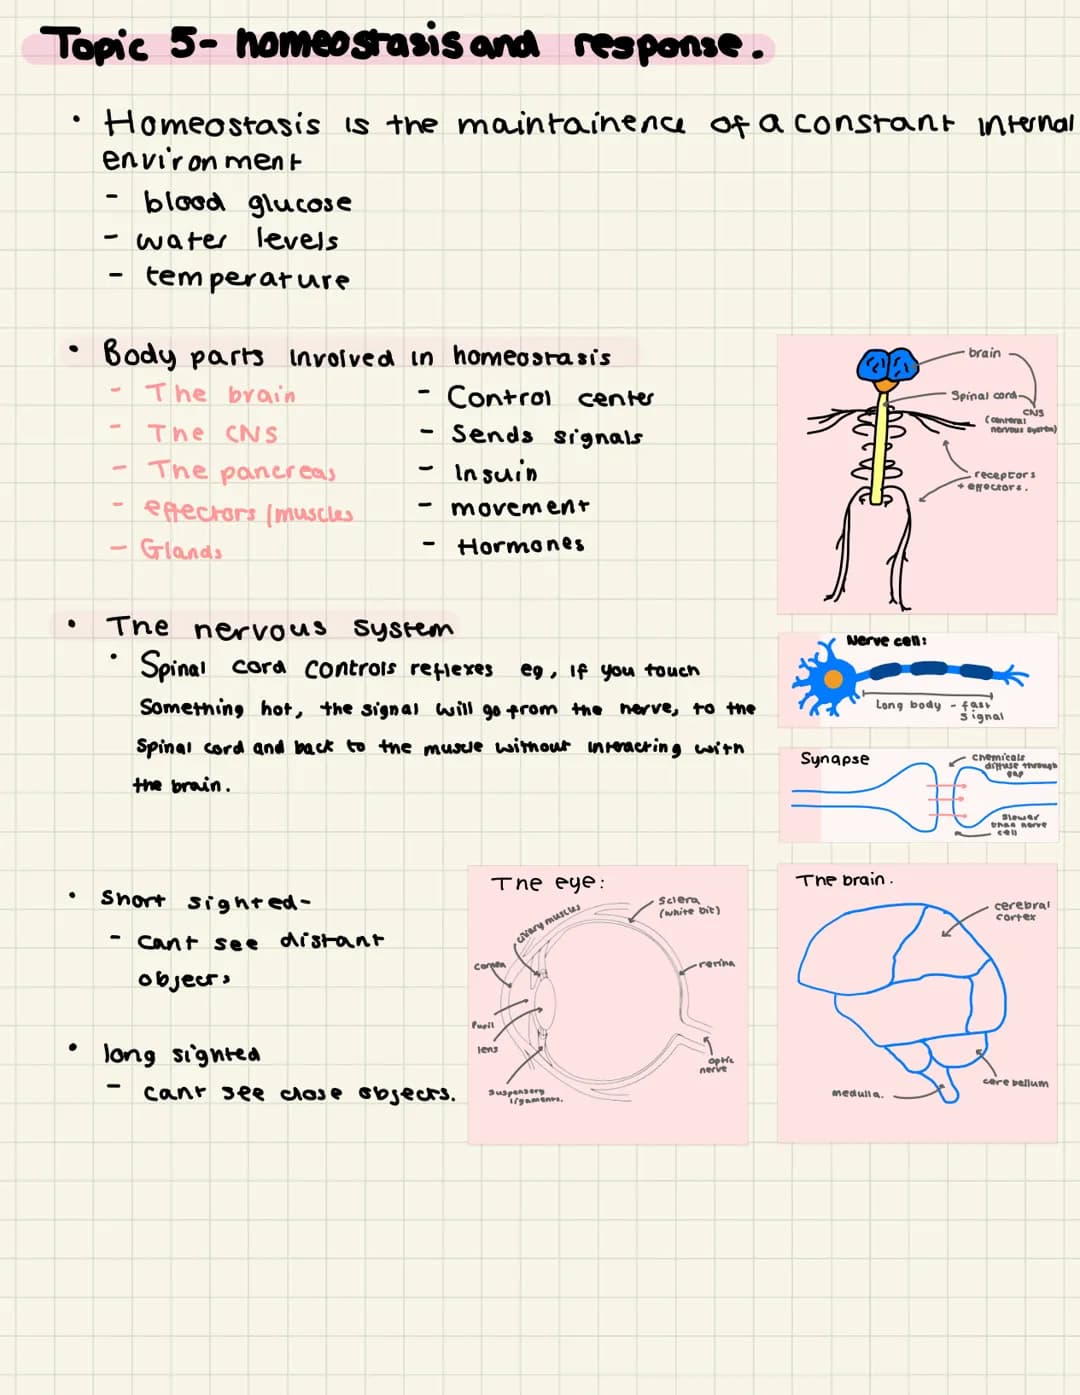 Topic 5- homeostasis and response.
• Homeostasis is the maintainence of a constant internal
environment
- blood glucose
- water levels
- temperature
• Body parts involved in homeostasis
- The brain - Control center
- The CNS - Sends signals
- The pancreas - Insuin
- effectors (muscles - movement
- Glands - Hormones
brain
Spinal cord
CNS
nervous system)
receptors
+ effectors.
• The nervous system
• Spinal cord controls reflexes eg, if you touch
Something hot, the signal will go from the nerve, to the
Spinal cord and back to the muscle without interacting with
the brain.
Nerve cell:
Long body - fast
signal
Synapse
chemicals
diffuse through
gap
Slower
than nerve
cell
• Short sighted-
- cant see distant
objects
• long sighted
- cant see close objects.
The eye:
ciliary muscles
Sclera
(white bit)
cornea
retina
Pupil
lens
optic
nerve
Suspensory
ligaments.
The brain.
cerebral
cortex
cerebellum
medulla.